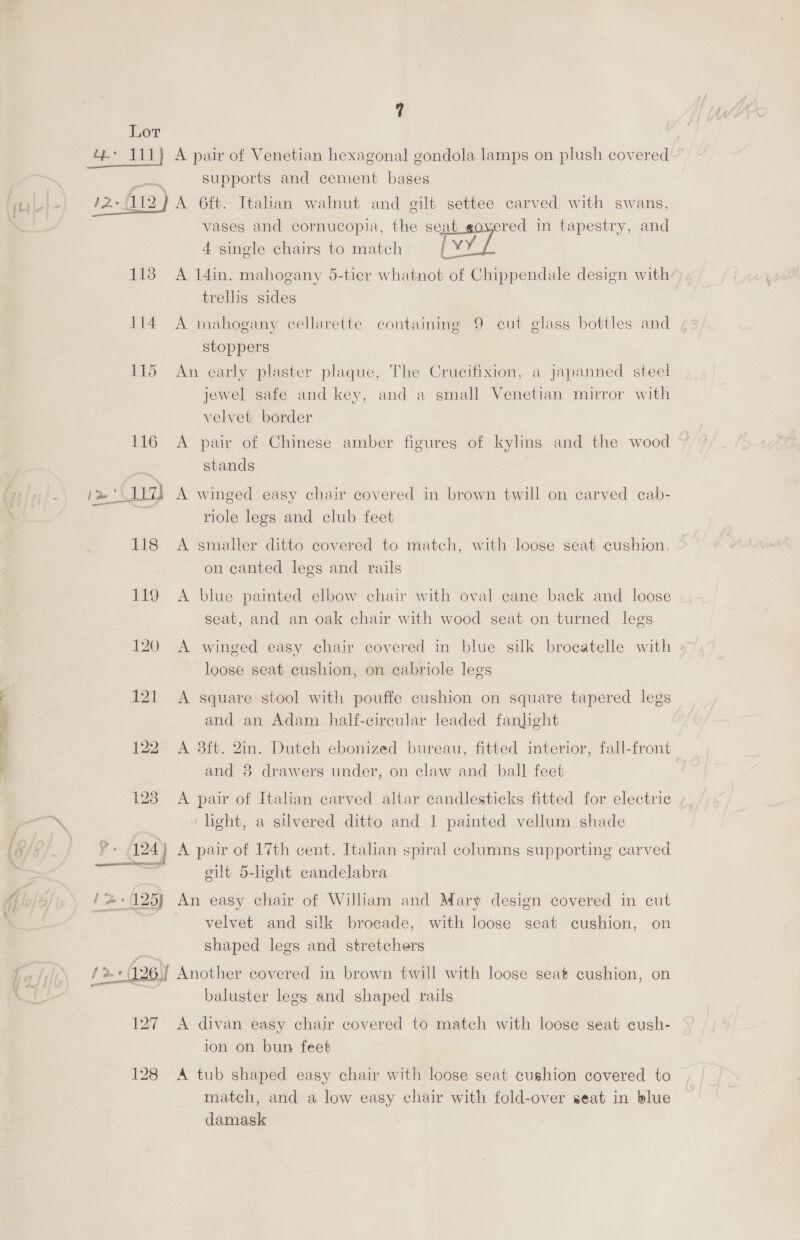 7
Lot
4.- 111} A pair of Venetian hexagonal gondola lamps on plush covered
supports and cement bases
12- (112) A 6ft. Italian walnut and gilt settee carved with swans,
vases and cornucopia, the seat covered in tapestry, and
4 single chairs to match
113 A 14in. mahogany 5-tier whatnot of Chippendale design with
trellis sides
114 A mahogany cellarette containing 9 cut glass bottles and
stoppers
115 An early plaster plaque, The Crucifixion, a japanned steel
jewel safe and key, and a small Venetian mirror with
velvet border
116 A pair of Chinese amber figures of kylins and the wood
stands
12- (117) A winged easy chair covered in brown twill on carved cab-
riole legs and club feet
118 A smaller ditto covered to match, with loose seat cushion.
on canted legs and rails
119 A blue painted elbow chair with oval cane back and loose
seat, and an oak chair with wood seat on turned legs
120 A winged easy chair covered in blue silk brocatelle with
loose seat cushion, on cabriole legs
121 A square stool with pouffe cushion on square tapered legs
and an Adam half-circular leaded fanlight
122 A 3ft. 2in. Dutch ebonized bureau, fitted interior, fall-front
and 3 drawers under, on claw and ball feet
123 A pair of Italian carved altar candlesticks fitted for electric
light, a silvered ditto and 1 painted vellum shade
(124) A pair of 17th cent. Italian spiral columns supporting carved
gilt 5-light candelabra
12- (125) An easy chair of William and Mary design covered in cut
velvet and silk brocade, with loose seat cushion, on
shaped legs and stretchers
12- (126) Another covered in brown twill with loose seat cushion, on
baluster legs and shaped rails
127 A divan easy chair covered to match with loose seat cush-
ion on bun feet
128 A tub shaped easy chair with loose seat cushion covered to
match, and a low easy chair with fold-over seat in blue
damask